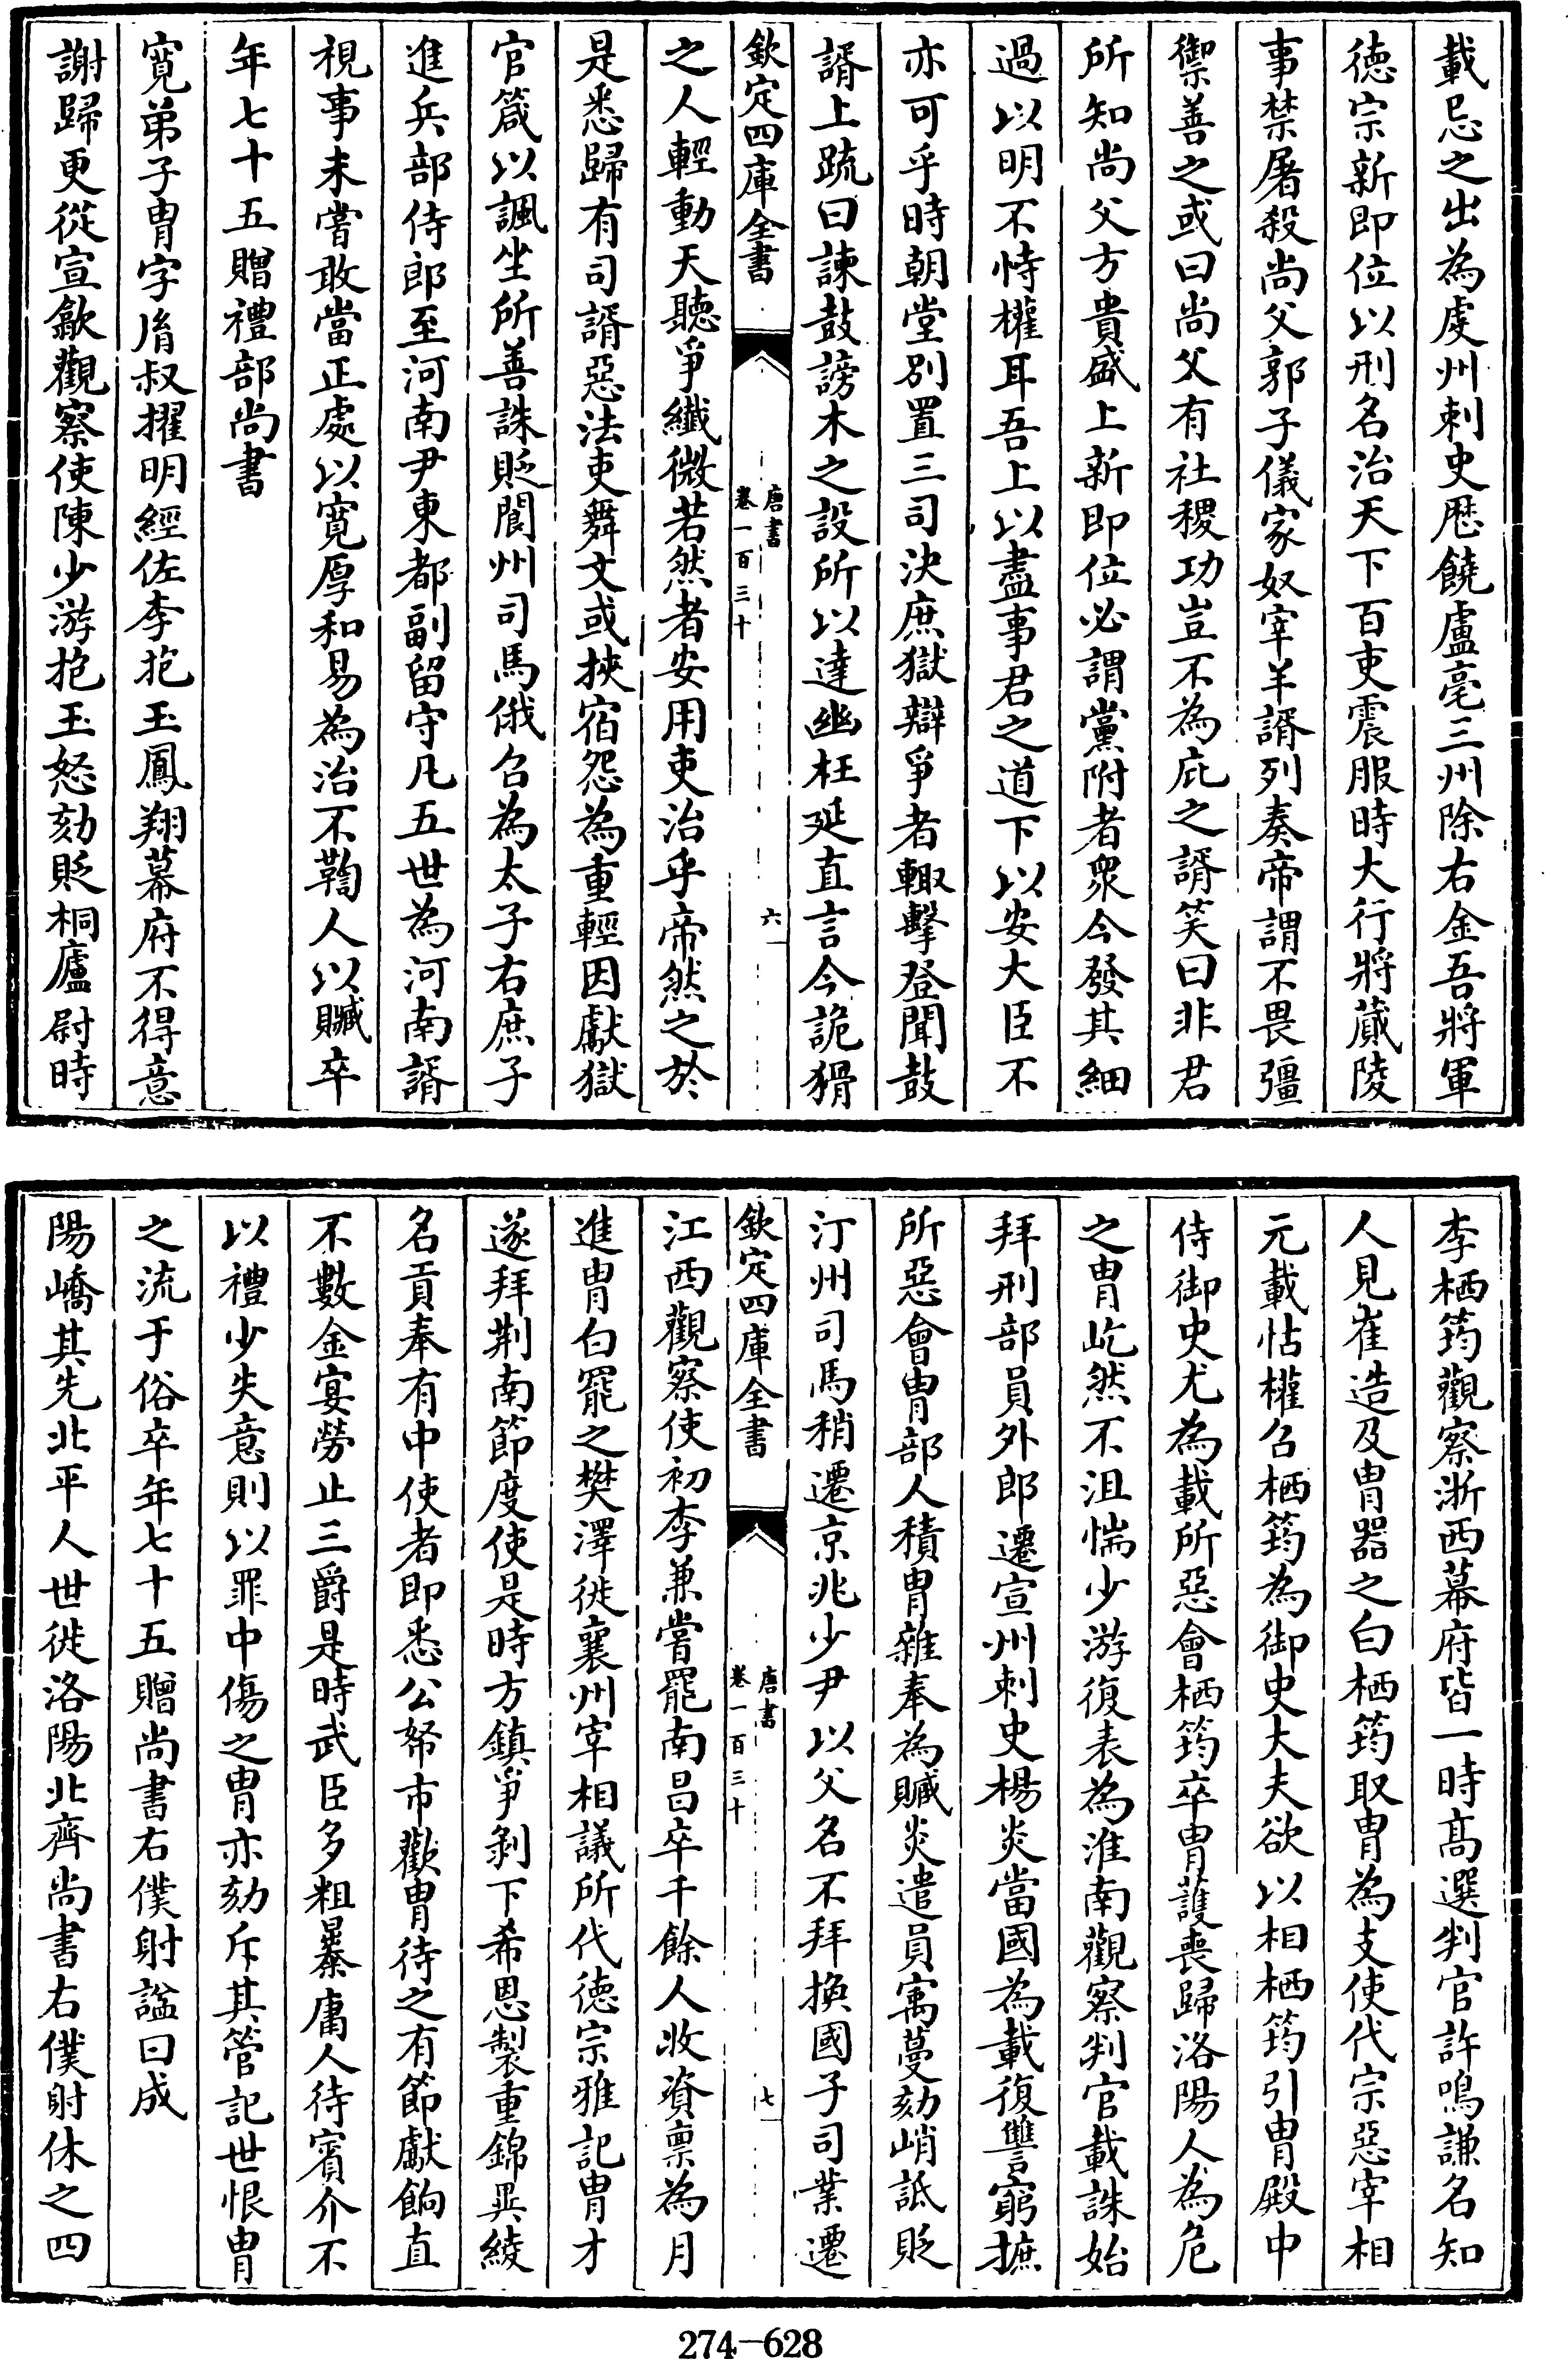 載忌之出為虔州刺史歴饒廬亳三州除右金吾將軍
徳宗新即位以刑名治天下百吏震服時大行將蕆陵
事禁屠殺尚父郭子儀家奴宰羊諝列奏帝謂不畏彊
禦善之或曰尚父有社稷功豈不為庇之諝笑曰非君
所知尚父方貴盛上新即位必謂黨附者衆今發其細
過以明不恃權耳吾上以盡事君之道下以安大臣不
亦可乎時朝堂別置三司決庶獄辯爭者輙擊登聞鼓
諝上疏曰諫鼓謗木之設所以達幽枉延直言今詭猾
欽定四庫全書
唐書
卷一百三十
六
之人輕動天聽爭纖微若然者安用吏治乎帝然之於
是悉歸有司諝惡法吏舞文或挾宿怨為重輕因獻獄
官箴以諷坐所善誅貶閬州司馬俄召為太子右庶子
進兵部侍郎至河南尹東都副留守凡五世為河南諝
視事未嘗敢當正處以寛厚和易為治不鞫人以贓卒
年七十五贈禮部尚書
寛弟子胄字𦙍叔擢明經佐李抱玉鳳翔幕府不得意
謝歸更從宣歙觀察使陳少游抱玉怒劾貶桐廬尉時
李栖筠觀察浙西幕府皆一時髙選判官許鳴謙名知
人見崔造及胄器之白栖筠取胄為支使代宗惡宰相
元載怙權召栖筠為御史大夫欲以相栖筠引胄殿中
侍御史尤為載所惡會栖筠卒胄護喪歸洛陽人為危
之胄屹然不沮惴少游復表為淮南觀察判官載誅始
拜刑部員外郎遷宣州刺史楊炎當國為載復讐窮摭
所惡會胄部人積胄雜奉為贓炎遣員寓蔓劾峭詆貶
汀州司馬稍遷京兆少尹以父名不拜換國子司業遷
欽定四庫全書
唐書
卷一百三十
七
江西觀察使初李兼嘗罷南昌卒千餘人收資稟為月
進胄白罷之樊澤徙襄州宰相議所代徳宗雅記胄才
遂拜荆南節度使是時方鎮爭剝下希恩製重錦異綾
名貢奉有中使者即悉公帑市歡胄待之有節獻餉直
不數金宴勞止三爵是時武臣多粗暴庸人待賓介不
以禮少失意則以罪中傷之胄亦劾斥其管記世恨胄
之流于俗卒年七十五贈尚書右僕射諡曰成
陽嶠其先北平人世徙洛陽北齊尚書右僕射休之四
274-628